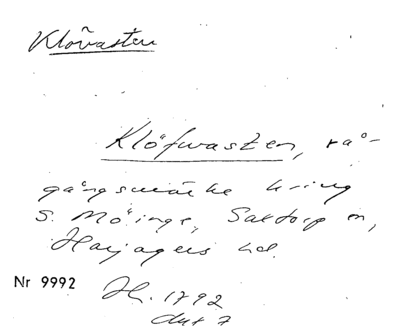 Klövasten
Klöfwasten, rå-
gångsmärke kring
S. Möinge, Saxtorp sn,
Harjagers hd.
Nr 9992
1792